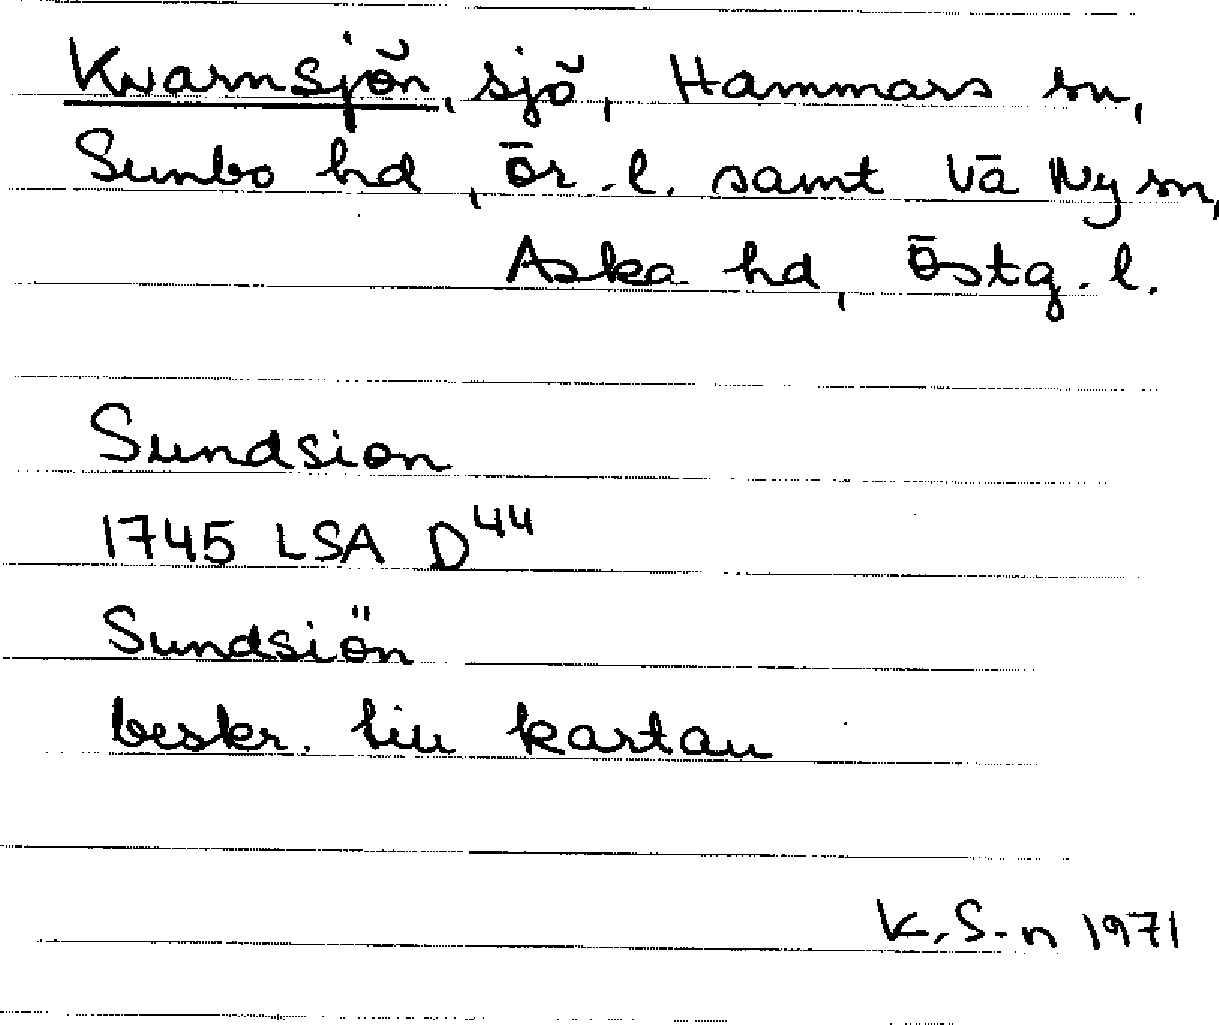 Kvarnsjön, sjö, Hammars sn,
Sunbo hd, ör. l. samt Vä Ny sn,
Aska hd, Östg. l.
Sundsion
1745 LSA D44
Sundsiön
beskr. till kartan
K. S-n 1971